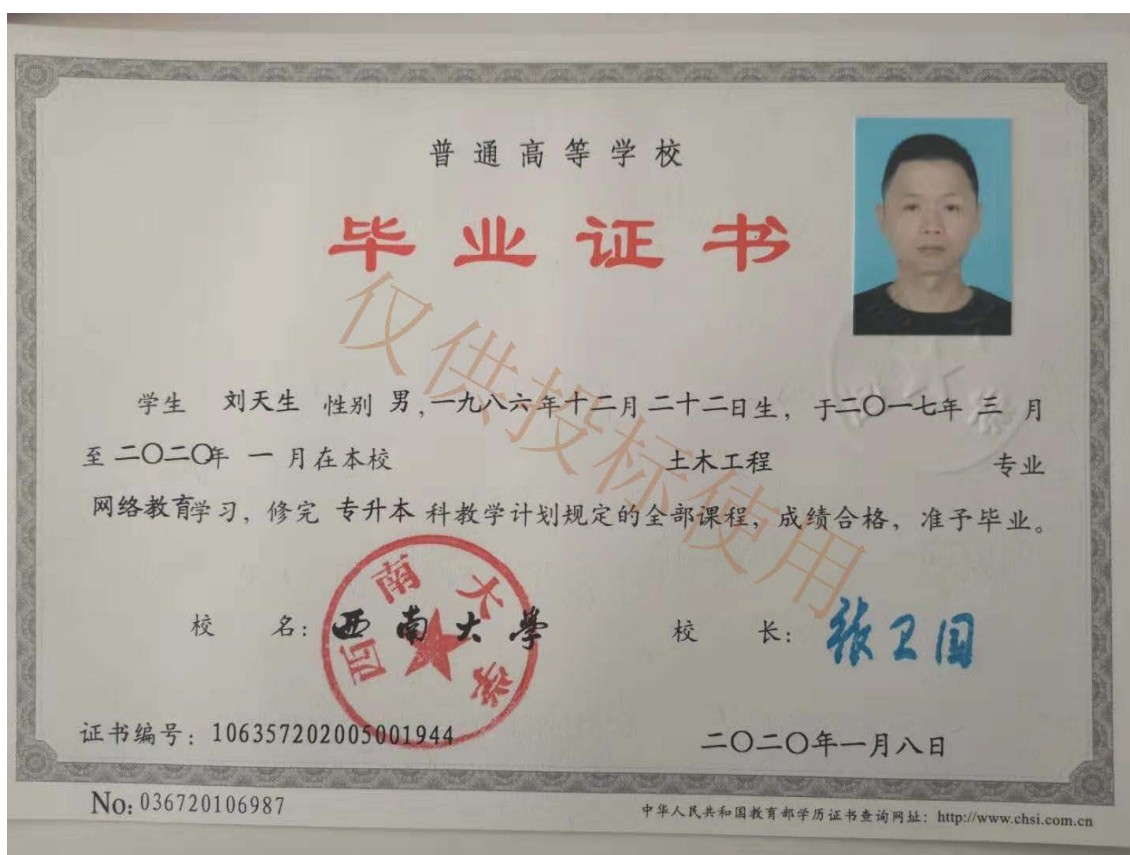 普通高等学校
毕业证书
学生 刘天生 性别 男，一九八六年十二月二十二日生，于二〇一七年 三 月
至 二〇二〇年 一 月在本校 土木工程 专业
网络教育学习，修完 专升本 科教学计划规定的全部课程，成绩合格，准予毕业。
校 名：西南大學 校 长：张卫国
西南大学
证书编号：106357202005001944 二〇二〇年一月八日
No: 036720106987 中华人民共和国教育部学历证书查询网址：http://www.chsi.com.cn
仅供投标使用